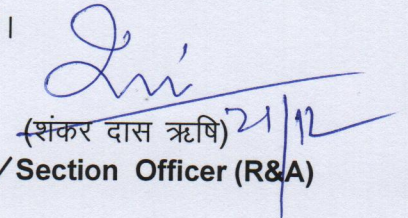 ।
(शंकर दास ऋषि) 21/12
/Section Officer (R&A)